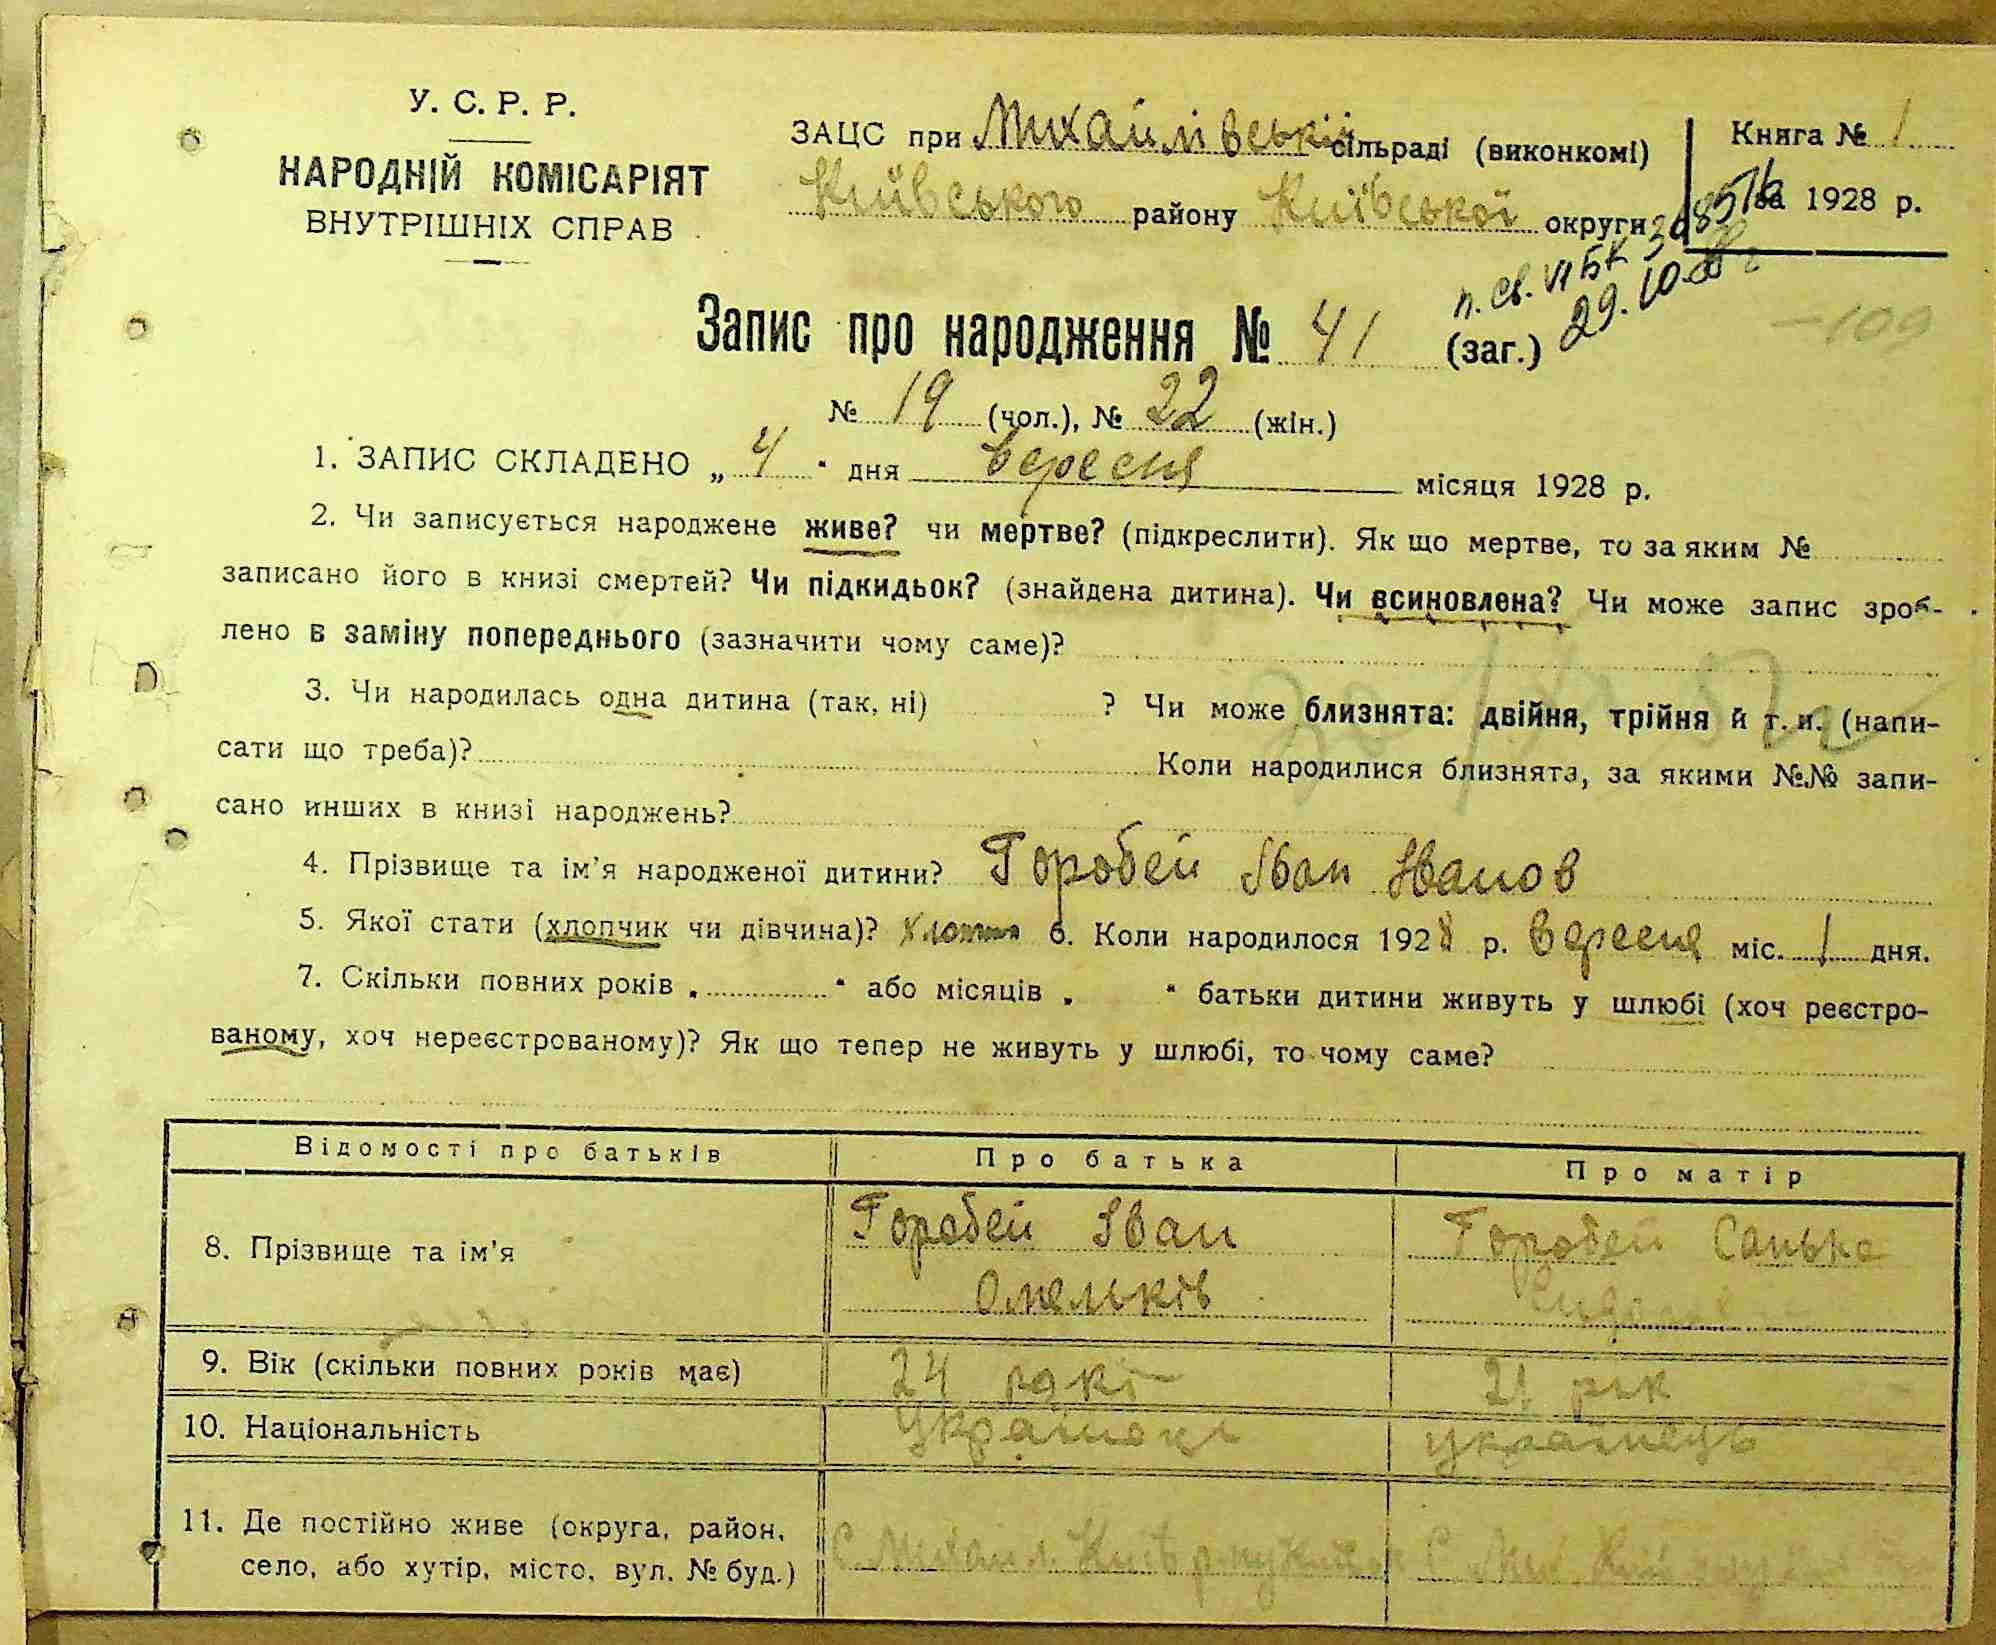 У. С. Р. Р.
НАРОДНІЙ КОМІСАРІЯТ
ВНУТРІШНІХ СПРАВ
ЗАЦС при Михайлівській сільраді (виконкомі)
Київського району Київської округи
Книга № 1
за 1928 р.
п. св. VI БК
29.10.
Запис про народження № 41 (заг.)
-109
№ 19 (чол.), № 22 (жін.)
1. ЗАПИС СКЛАДЕНО „ 4 " дня вересня місяця 1928 р.
2. Чи записується народжене живе? чи мертве? (підкреслити). Як що мертве, то за яким №
записано його в книзі смертей? Чи підкидьок? (знайдена дитина). Чи всиновлена? Чи може запис зроб-
лено в заміну попереднього (зазначити чому саме)?
3. Чи народилась одна дитина (так, ні) ? Чи може близнята: двійня, трійня й т. и. (напи-
сати що треба)? Коли народилися близнята, за якими №№ запи-
сано инших в книзі народжень?
4. Прізвище та ім'я народженої дитини? Горобей Іван Іванов
5. Якої стати (хлопчик чи дівчина)? 6. Коли народилося 1928 р. вересня міс. 1 дня.
7. Скільки повних років „ " або місяців „ " батьки дитини живуть у шлюбі (хоч реєстро-
ваному, хоч нереєстрованому)? Як що тепер не живуть у шлюбі, то чому саме?
Відомості про батьків Про батька Про матір
8. Прізвище та ім'я Горобей Іван Горобей Санька
Омельків
9. Вік (скільки повних років має) 24 рокі 21 рік
10. Національність українець українець
11. Де постійно живе (округа, район,
село, або хутір, місто, вул. № буд.) С.